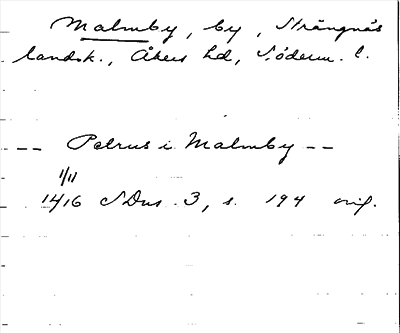 Malmby, by, Strängnäs
landsk., Åkers hd, Söderm. l.
-- Petrus i Malmby --
1/11
1416 SDns 3, s. 194 orig.